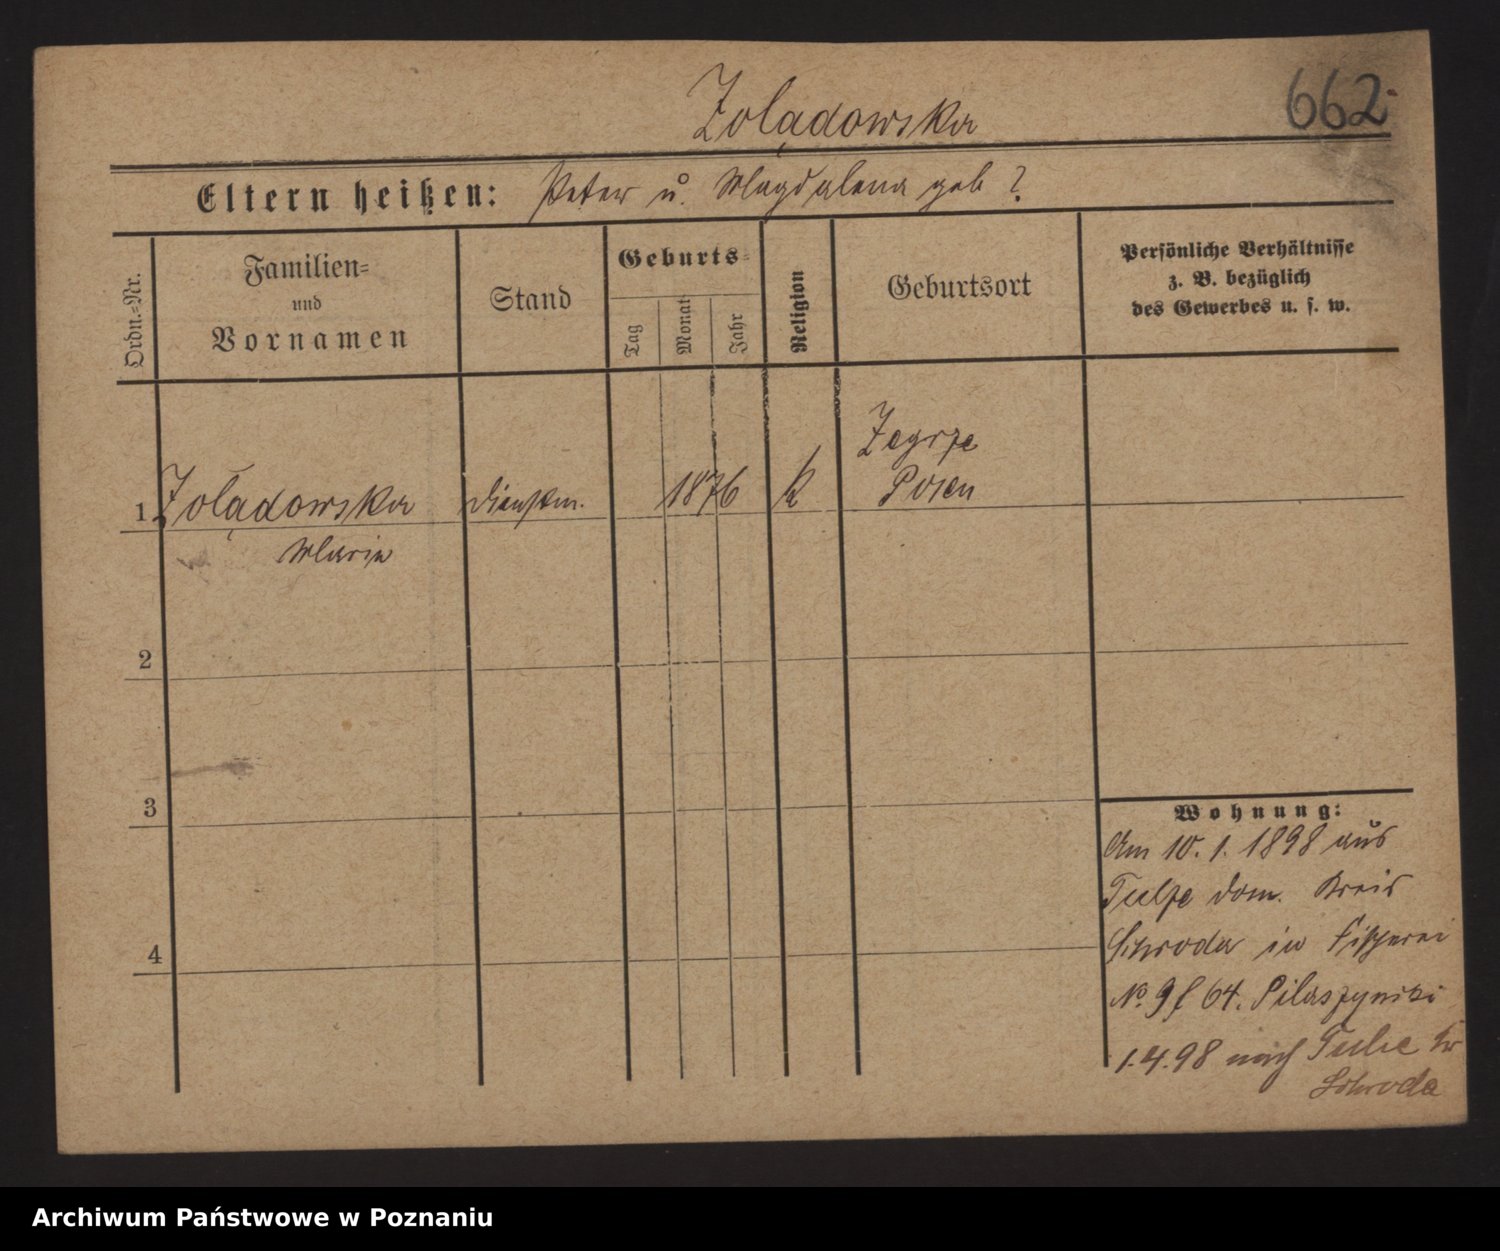 Zolądowska
662.
Eltern heißen: Peter u. Magdalena geb ?
Ordn.=Nr.
Familien=
und
Vornamen
Stand
Geburts=
Tag
Monat
Jahr
Religion
Geburtsort
Persönliche Verhältnisse
z. B. bezüglich
des Gewerbes u. s. w.
Zegrze
1 Zolądowska Dienstm. 1876 k Posen
Maria
2
3
4
Wohnung:
Am 10. 1. 1898 aus
Tulze dom. Kreis
Schroda in Fischerei
No. 9 64.
1.4.98 nach Kr
Schroda
Archiwum Państwowe w Poznaniu